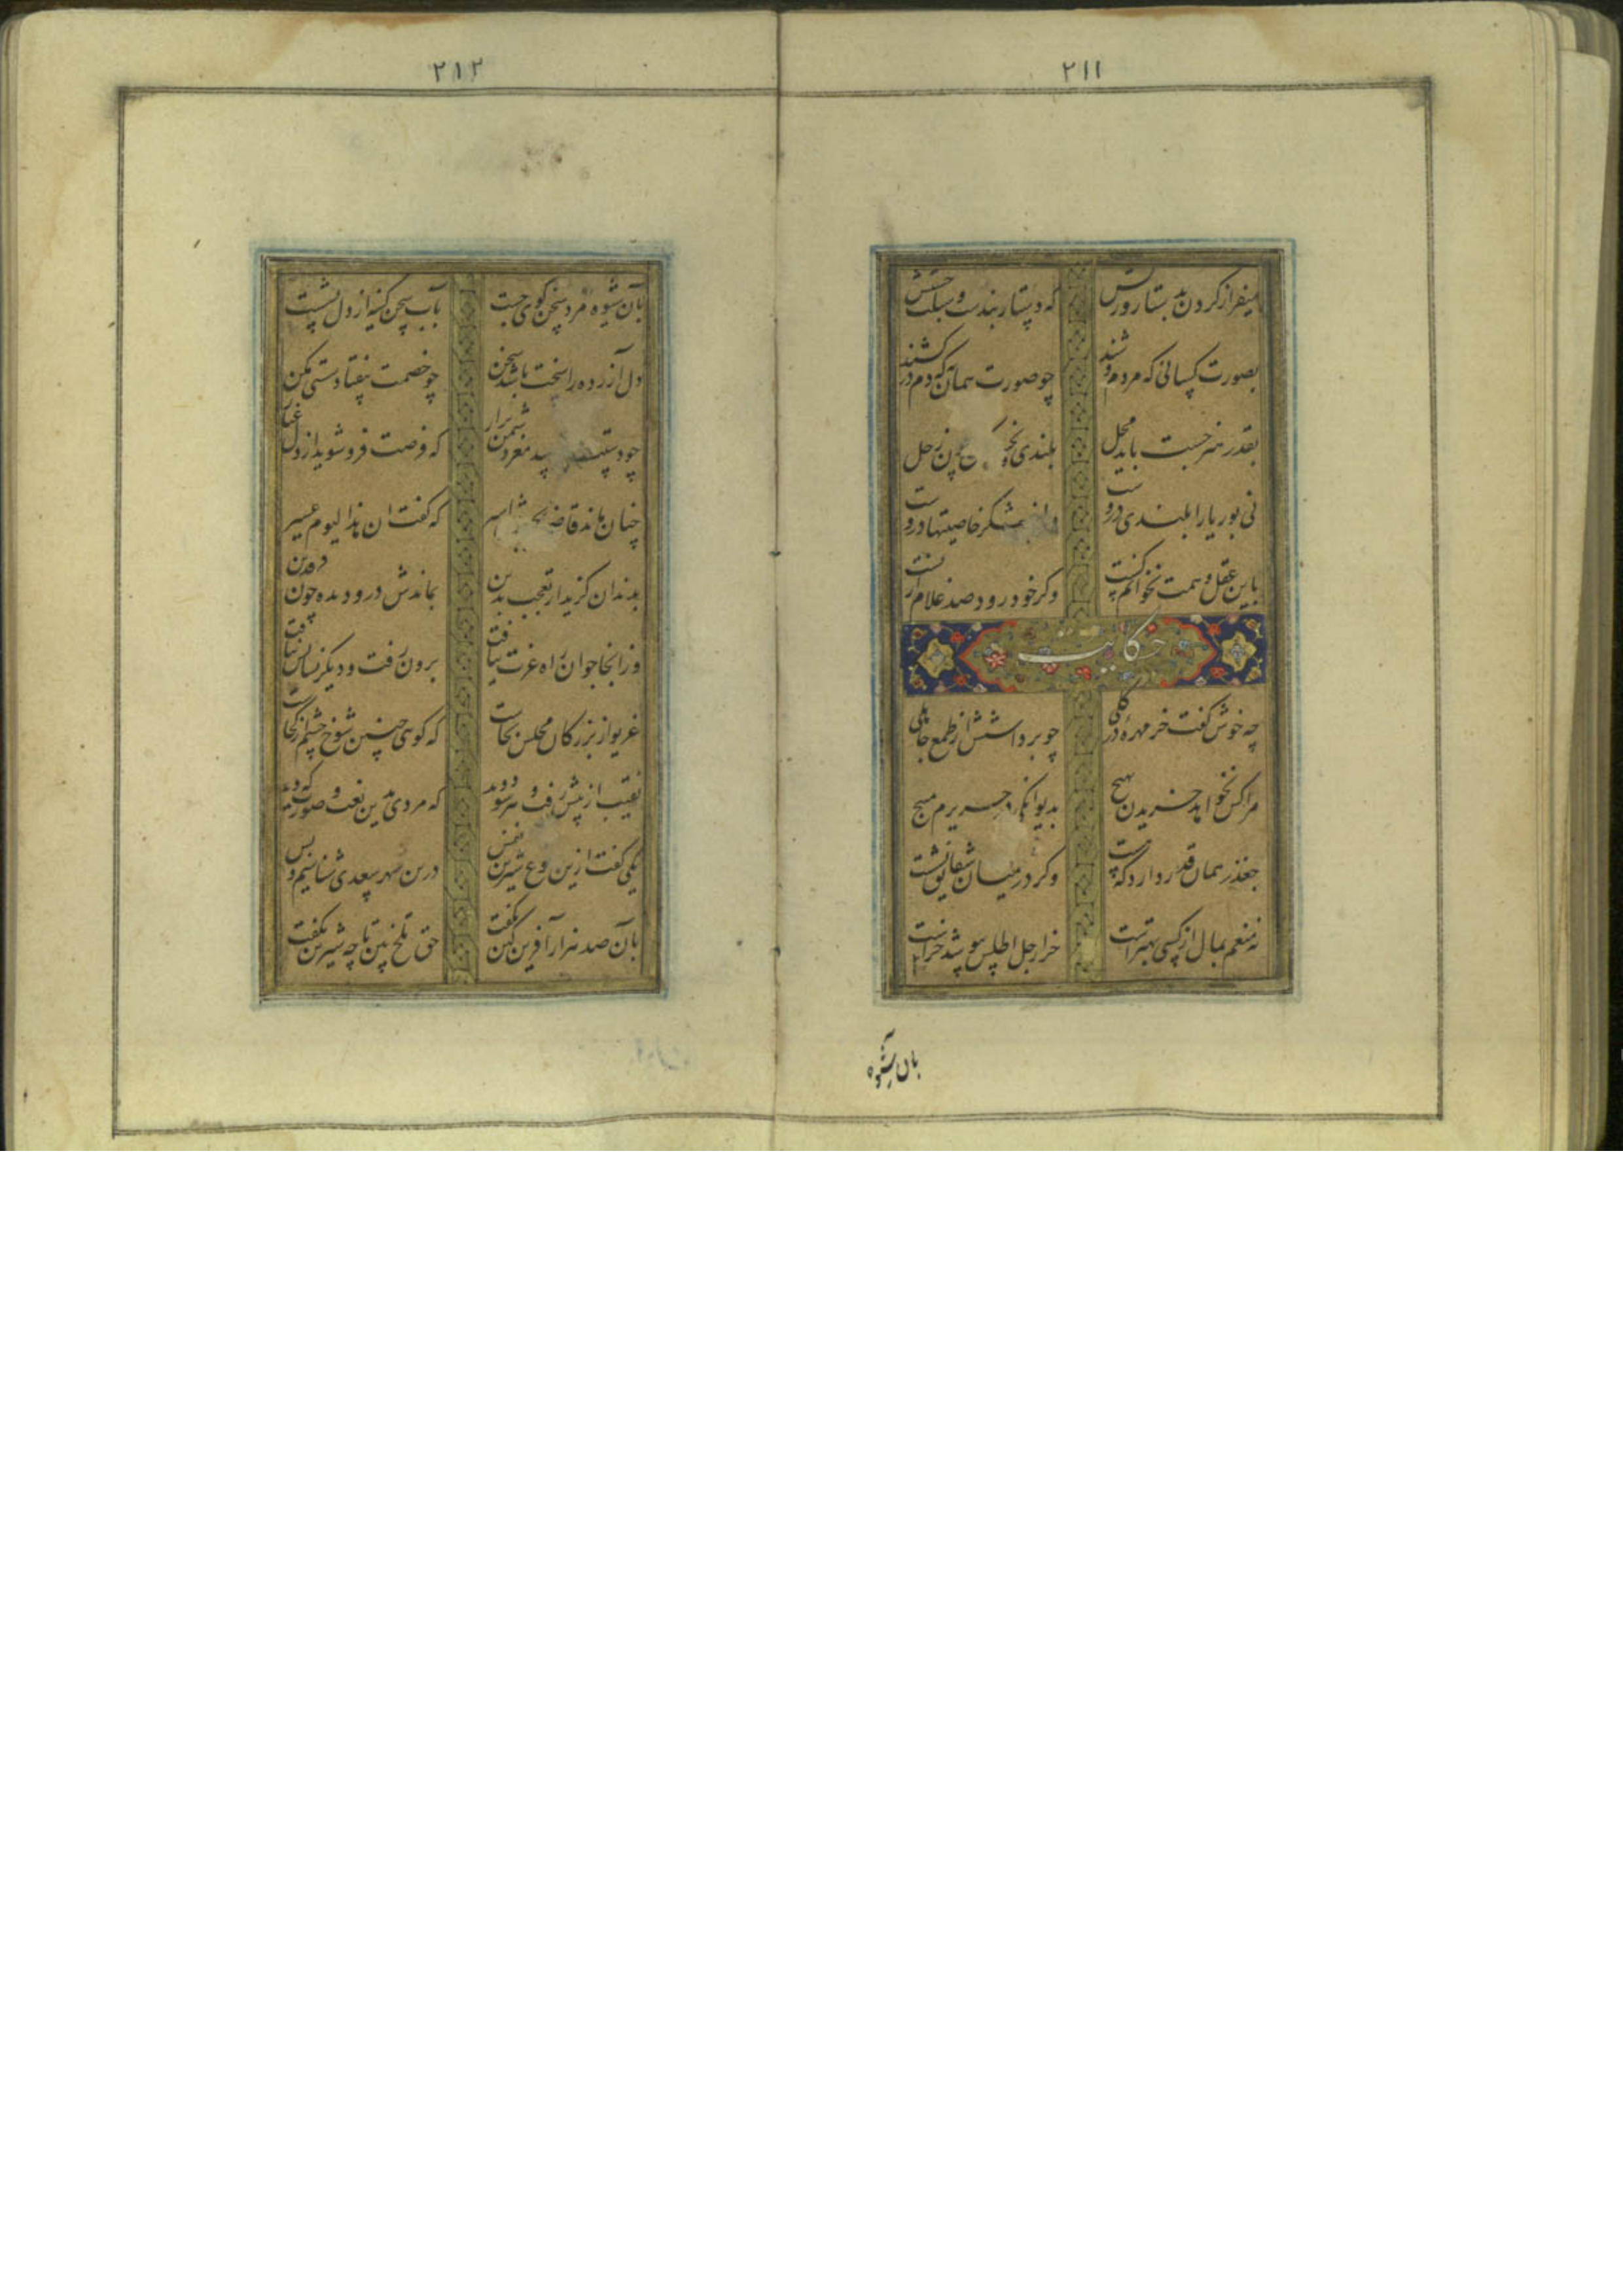 ۲۱۱
میفراز کردن بدستار و ریش که دستار پنبست و سبلت حشیش
بصورت کسانی که مردم وشند چو صورت همان به که دم درکشند
بقدر هنر جست باید محل بلندی و نحسی مکن چون زحل
نی بوریا را بلندی دروست که خاصیتها دروست
باین عقل و همت نخوانم کست وکر خود رود صد غلام از پست
حکایت
چه خوش کفت خر مهره در کلی چو برداشتش از طمع جاهلی
مرا کس نخواهد خریدن بهیچ بدیوانکی در حریرم مپیچ
جعفر همان قدر دارد که هست وکر در میان شقایق نشست
نه منعم بمال از کسی بهترست خر ار جل اطلس بپوشد خرست
بآن شیوه
۲۱۲
بآن شیوه مرد سخن کوی جست بآب سخن کینه از دل بشست
دل آزرده را سخت باشد سخن چو خصمت بیفتاد سستی مکن
چو دستت رسد مغز دشمن برار که فرصت فرو شوید از دل غبار
چنان ماند قاضی بجورش اسیر که کفت ان هذا لیوم عسیر
بدندان کزید از تعجب یدین بماندش درو دیده چون فرقدین
وزانجا جوان راه عزت بتافت برون رفت و دیکر نشانش نیافت
غریو از بزرکان مجلس بخاست که کوی چنین شوخ چشم از کجاست
نقیب از پیش رفت و هر سو دوید که مردی بدین نعت و صورت که دید
یکی کفت ازین نوع شیرین نفس درین شهر سعدی شناسیم و بس
بآن صد هزار آفرین کین بکفت حق تلخ بین تا چه شیرین بکفت